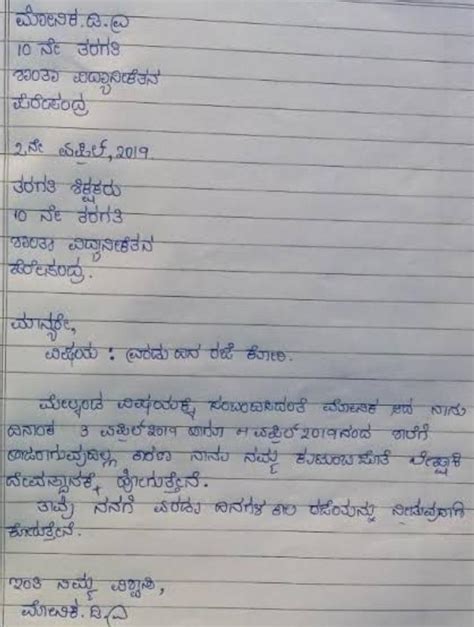 ಮೋನಿಕ. ಡಿ. ವಿ
10 ನೇ ತರಗತಿ
ಶಾಂತಾ ವಿದ್ಯಾನಿಕೇತನ
ಪೆರೇಸಂದ್ರ
2ನೇ ಏಪ್ರಿಲ್, 2019
ತರಗತಿ ಶಿಕ್ಷಕರು
10 ನೇ ತರಗತಿ
ಶಾಂತಾ ವಿದ್ಯಾನಿಕೇತನ
ಪೆರೇಸಂದ್ರ.
ಮಾನ್ಯರೇ,
ವಿಷಯ : ಎರಡು ದಿನ ರಜೆ ಕೋರಿ.
ಮೇಲ್ಕಂಡ ವಿಷಯಕ್ಕೆ ಸಂಬಂಧಿಸಿದಂತೆ ಮೋನಿಕ ಆದ ನಾನು
ದಿನಾಂಕ 3 ಏಪ್ರಿಲ್ 2019 ಹಾಗೂ 4 ಏಪ್ರಿಲ್ 2019ರಂದು ಶಾಲೆಗೆ
ಹಾಜರಾಗುವುದಿಲ್ಲ ಕಾರಣ ನಾನು ನಮ್ಮ ಕುಟುಂಬ ಜೊತೆ
ದೇವಸ್ಥಾನಕ್ಕೆ ಹೋಗುತ್ತೇನೆ.
ತಾವು ನನಗೆ ಎರಡು ದಿನಗಳ ಕಾಲ ರಜೆಯನ್ನು ನೀಡುವುದಾಗಿ
ಕೋರುತ್ತೇನೆ.
ಇಂತಿ ನಿಮ್ಮ ವಿಶ್ವಾಸಿ,
ಮೋನಿಕ. ಡಿ. ವಿ